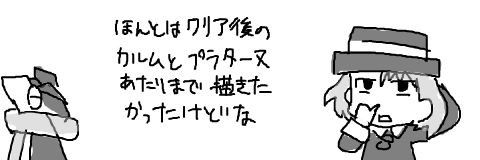 ほんとはクリア後の
カルムとプラターヌ
あたりまで描きた
かったけどな